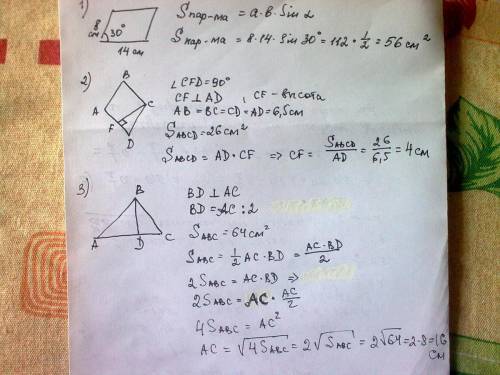 1)
8 см
30°
14 см
Sпар-ма = a·в·Sin α
Sпар-ма = 8·14·Sin 30° = 112·1/2 = 56 см²
2)
B
A
C
F
D
∠CFD=90°
CF⊥AD, CF-высота
AB=BC=CD=AD=6,5см
SABCD=26см²
SABCD=AD·CF => CF= SABCD/AD = 26/6,5 = 4 см
3)
B
A D C
BD ⊥ AC
BD = AC:2
SABC=64см²
SABC=1/2 AC·BD = AC·BD/2
2SABC = AC·BD =>
2SABC = AC · AC/2
4SABC = AC²
AC = √4SABC = 2√SABC = 2√64=2·8=16
см